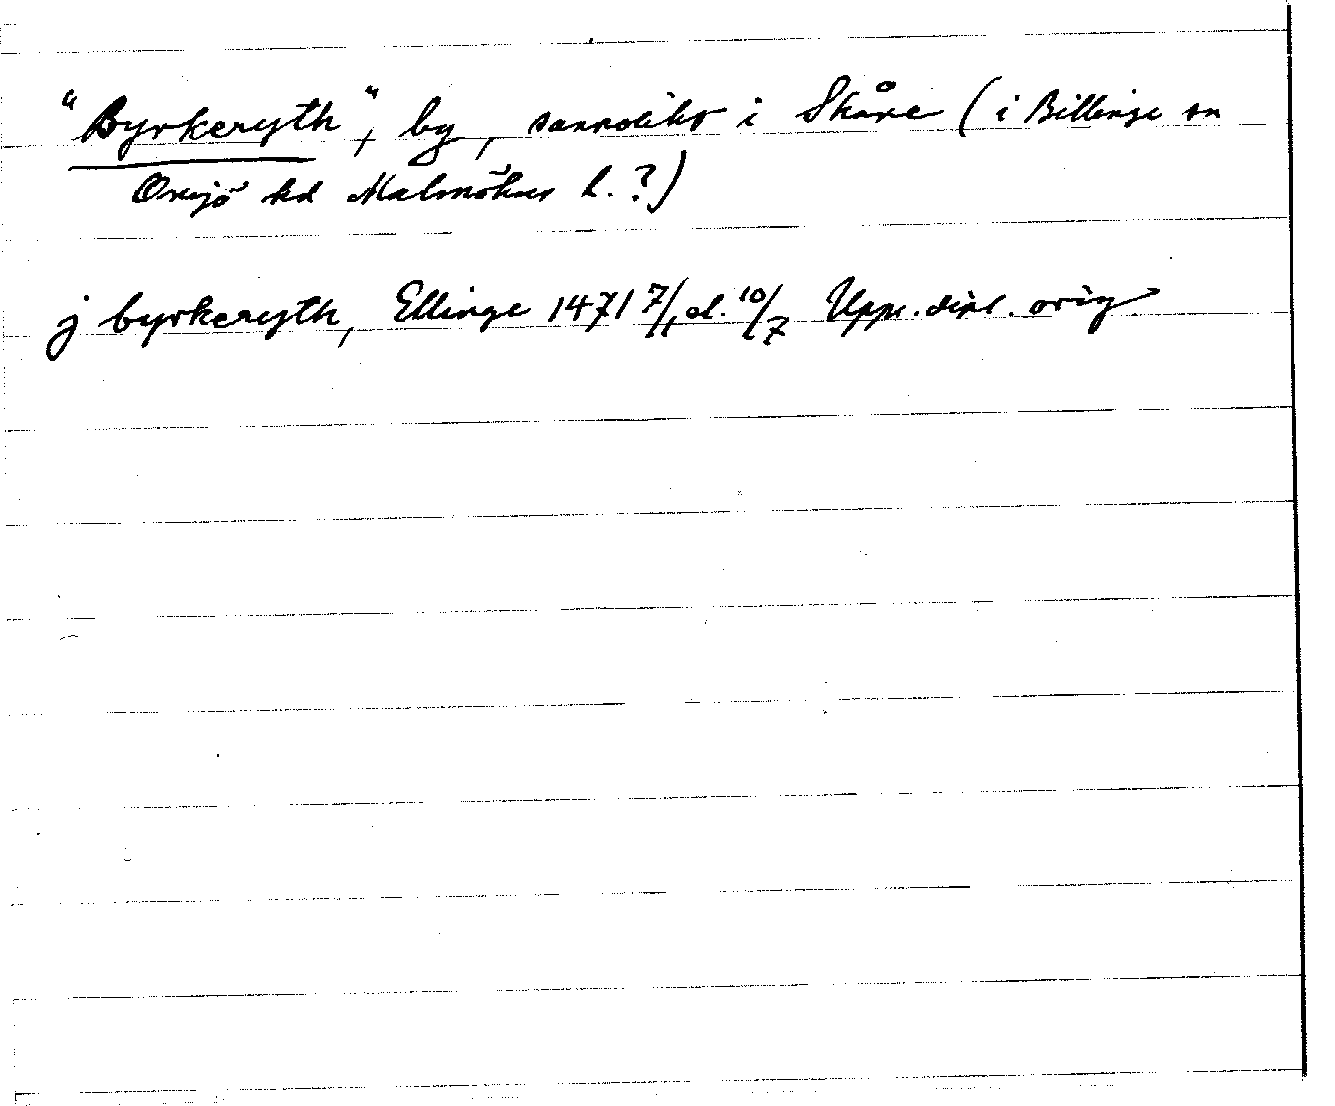 "Byrkeryth", by, sannolikt i Skåne (i Billinge sn
Onsjö hd Malmöhus l.?)
j byrkeryth, Ellinge 1471 7/1 el. 10/7 Upps. dipl. orig